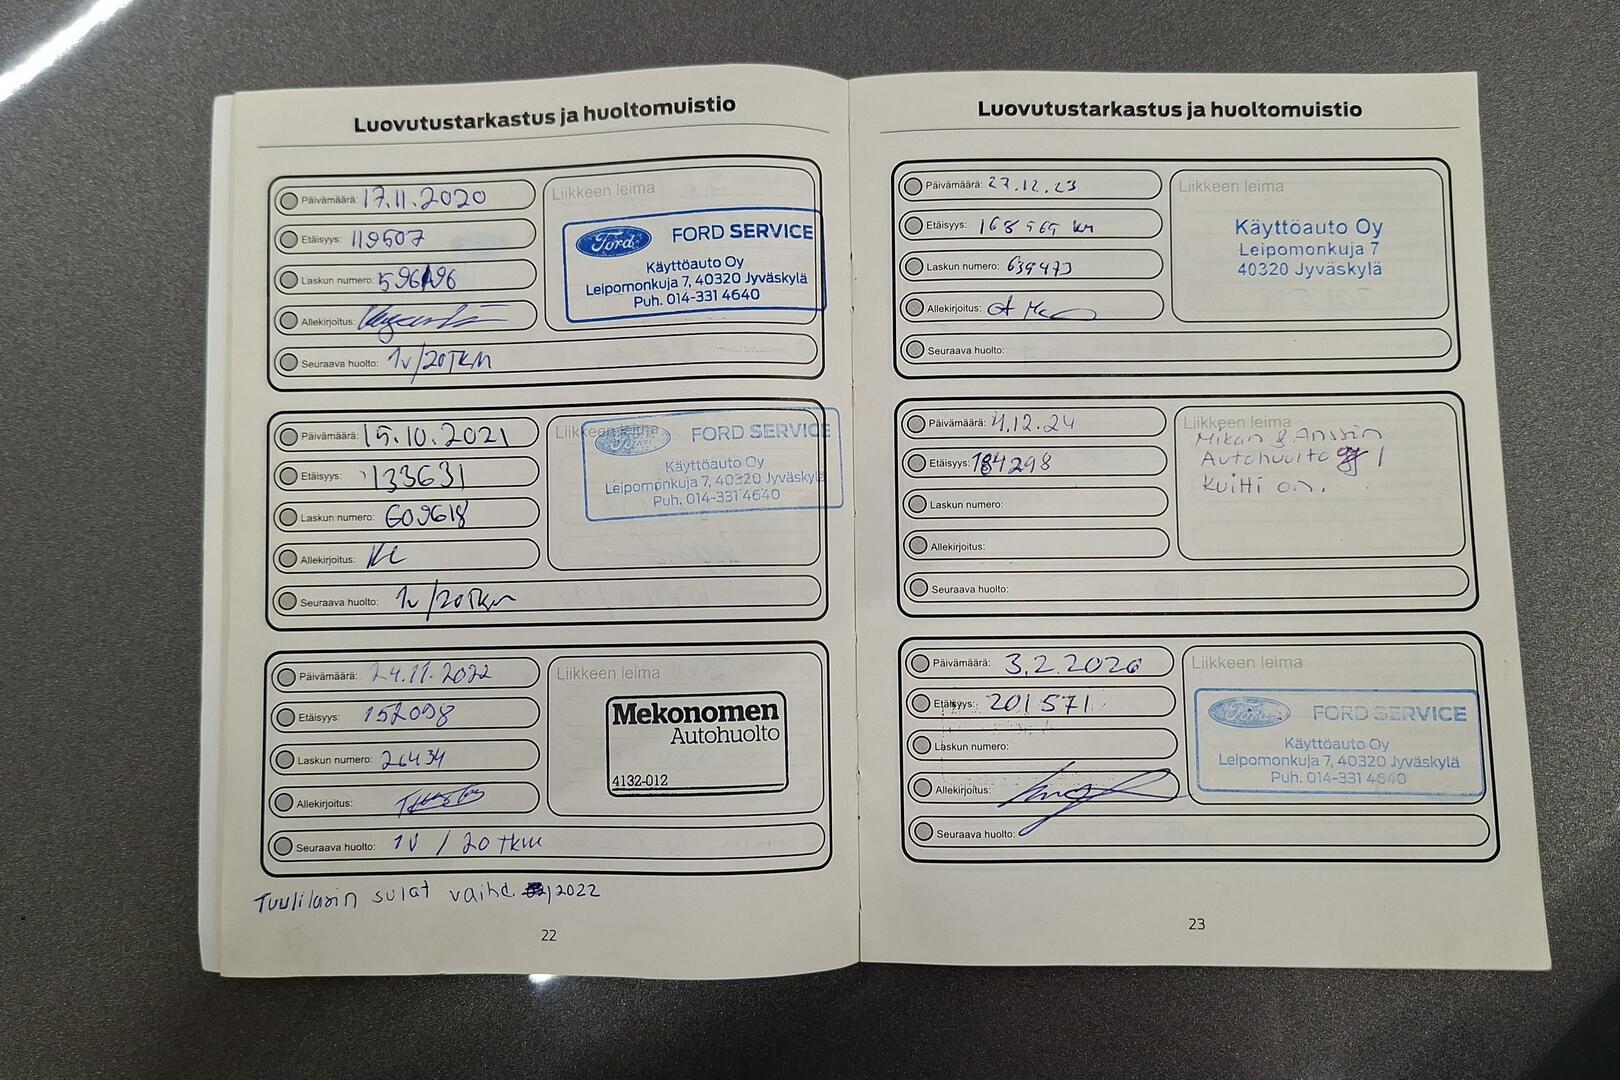 Luovutustarkastus ja huoltomuistio
Päivämäärä: 17.11.2020
Etäisyys: 119507
Laskun numero: 596196
Allekirjoitus:
Seuraava huolto: 1v/20TKM
Liikkeen leima
Ford FORD SERVICE
Käyttöauto Oy
Leipomonkuja 7, 40320 Jyväskylä
Puh. 014-331 4640
Päivämäärä: 15.10.2021
Etäisyys: 133631
Laskun numero: 609618
Allekirjoitus:
Seuraava huolto: 1v/20Tkm
Liikkeen leima
Ford FORD SERVICE
Käyttöauto Oy
Leipomonkuja 7, 40320 Jyväskylä
Puh. 014-331 4640
Päivämäärä: 24.11.2022
Etäisyys: 152098
Laskun numero: 26434
Allekirjoitus:
Seuraava huolto: 1V / 20 tkm
Liikkeen leima
Mekonomen
Autohuolto
4132-012
Tuulilasin sulat vaihd. /2022
22
Luovutustarkastus ja huoltomuistio
Päivämäärä: 27.12.23
Etäisyys: km
Laskun numero: 639473
Allekirjoitus:
Seuraava huolto:
Liikkeen leima
Käyttöauto Oy
Leipomonkuja 7
40320 Jyväskylä
Päivämäärä: 4.12.24
Etäisyys: 184298
Laskun numero:
Allekirjoitus:
Seuraava huolto:
Liikkeen leima
Mikan & Anssin
Autohuolto
Kuitti on.
Päivämäärä: 3.2.2026
Etäisyys: 201571
Laskun numero:
Allekirjoitus:
Seuraava huolto:
Liikkeen leima
Ford FORD SERVICE
Käyttöauto Oy
Leipomonkuja 7, 40320 Jyväskylä
Puh. 014-331 4640
23